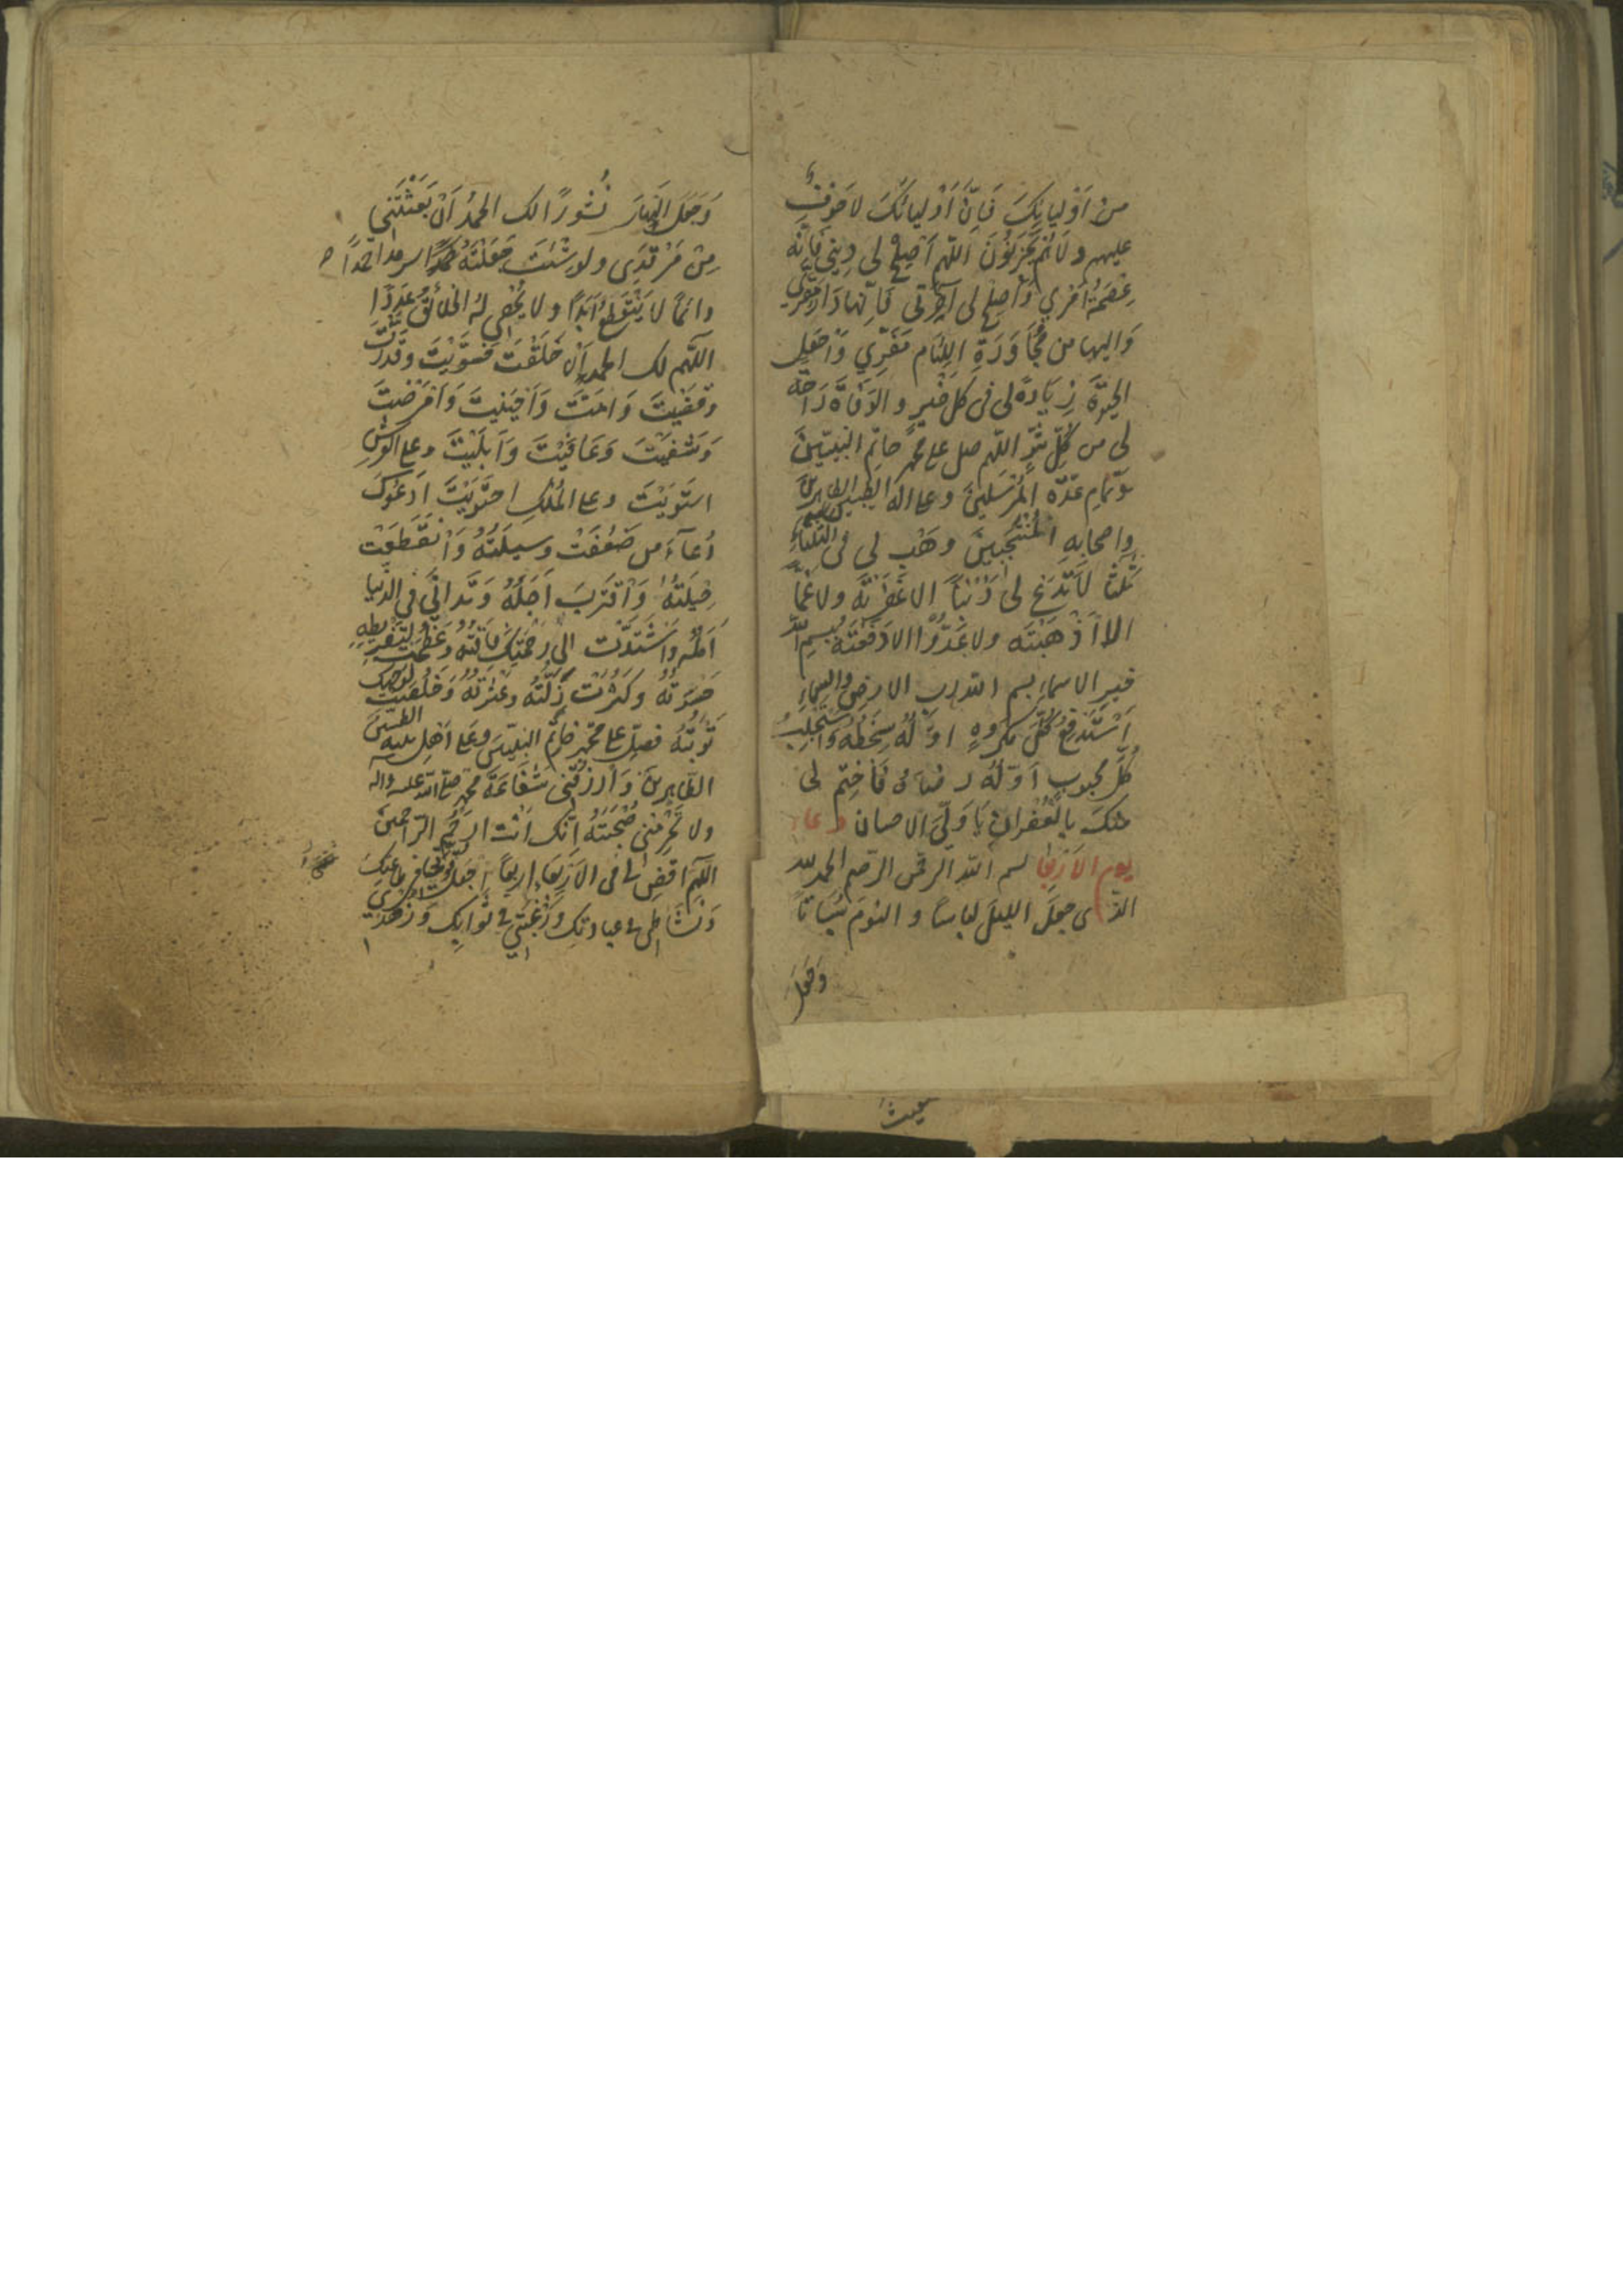 من اَوْلیائِکَ فَاِنَّ اَوْلیائَکَ لاخَوْفٌ
علیهم ولاهُمْ یَحْزَنُونَ اللّهم اَصْلِحْ لی دینی فَاِنَّه
عِصْمَةُ اَمْری وَاَصْلِحْ لی آخِرَتی فَاِنّها دَارُ مَقَرّی
وَالیها من مُجٰاوَرَةِ اللِئٰام مَفَرّی وَاجْعَلِ
الحیٰوةَ زِیَادَةً لی فی کل خَیْرٍ والوَفٰاةَ رَاحَةً
لی من کُلِّ شَرٍّ اللّهم صل علی محمّد خاتَمِ النبیّینَ
وَتمامِ عِدَّةِ المُرْسَلینَ وعلی اله الطیبین الطاهرینَ
واصحابِهِ المُنْتَجَبینَ وَهَبْ لی فی الثلثاءِ
ثَلٰثًا لاتَدَعْ لی ذَنْبًا الا غَفَرْتَه ولاغَمًّا
الا اَذْهَبْتَه ولاعَدُوًّا الا دَفَعْتَه بِبِسمِ اللّه
خیرِ الاسماءِ بسم اللّه رب الارضِ والسماءِ
اَسْتَدْفِعُ کُلَّ مَکْرُوهٍ اوّلُهُ سَخَطُهُ وَاَسْتَجْلِبُ
کُلَّ محبوبٍ اَوّلُهُ رضاهُ فَاخْتِمْ لی
منکَ بالغُفرانِ یٰا وَلِیَّ الاحسان دعاء
یوم الاربعا بسم اللّه الرحمن الرحیم الحمد للّه
الذی جعَلَ اللیلَ لباسًا والنومَ سُبَاتًا
وَجَعَلَ
وَجَعَلَ النَهارَ نُشُورًا لک الحمدُ اَنْ بَعَثْتَنی
مِنْ مَرْقَدی ولو شِئْتَ جَعَلْتَهُ سرمدا حَمْدًا
دائمًا لایَنْقَطِعُ اَبَدًا ولا یُحْصی لَهُ الخلائقُ عَدَدًا
اللّهم لک الحمد اَنْ خَلَقْتَ فَسَوَّیْتَ وقَدَّرْتَ
وقَضَیْتَ وَاَمَتَّ وَاَحْیَیْتَ وَاَمْرَضْتَ
وَشَفَیْتَ وَعَافَیْتَ وَاَبْلَیْتَ وعلی العَرْشِ
استَوَیْتَ وعلی المُلْکِ احتَوَیْتَ اَدْعُوکَ
دُعاءَ من ضَعُفَتْ وسیلَتُهُ وَانْقَطَعَتْ
حیلَتُهُ وَاقْتَرَبَ اَجَلُهُ وَتَدانی فی الدنیا
اَمَلُهُ وَاشْتَدَّت الی رَحْمَتِکَ فٰاقَتُهُ وعَظُمَتْ لِتَفْریطِهِ
حَسْرَتُهُ وکَثُرَتْ زَلَّتُهُ وعَثْرَتُهُ وَخَلُصَتْ لوجهک
تَوْبَتُهُ فصلّ علی محمّدٍ خاتَمِ النبیّینَ وعلی اَهْلِ بیته الطیبینَ
الطّاهرینَ وَارْزُقْنی شَفٰاعَةَ محمّد صلی اللّه علیه واله
ولا تَحْرِمْنی صُحْبَتَهُ اِنَّک اَنْتَ ارحَمُ الرّاحمینَ
اللّهم اقضِ لی فی الاَرْبَعاءِ اربعًا اِجْعَلْ قُوَّتی فی طاعتکَ
وَنَشَاطی فی عبادتک وَرَغْبَتی فی ثَوابِکَ وَزُهْدی